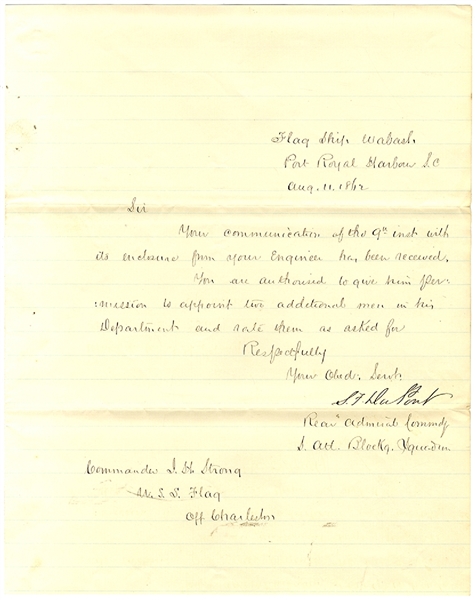 Flag Ship Wabash
Port Royal Harbour S.C
Aug. 11. 1862
Sir
Your communication of the 9th inst with
its enclosure from your Engineer has been received.
You are authorised to give him per-
:mission to appoint two additional men in his
Department and rate them as asked for
Respectfully
Your Obd. Servt.
S. F. Du Pont
Rear Admiral Commdg
S. Atl. Blockg. Squadron
Commander J. H. Strong
U. S. S. Flag
Off Charleston